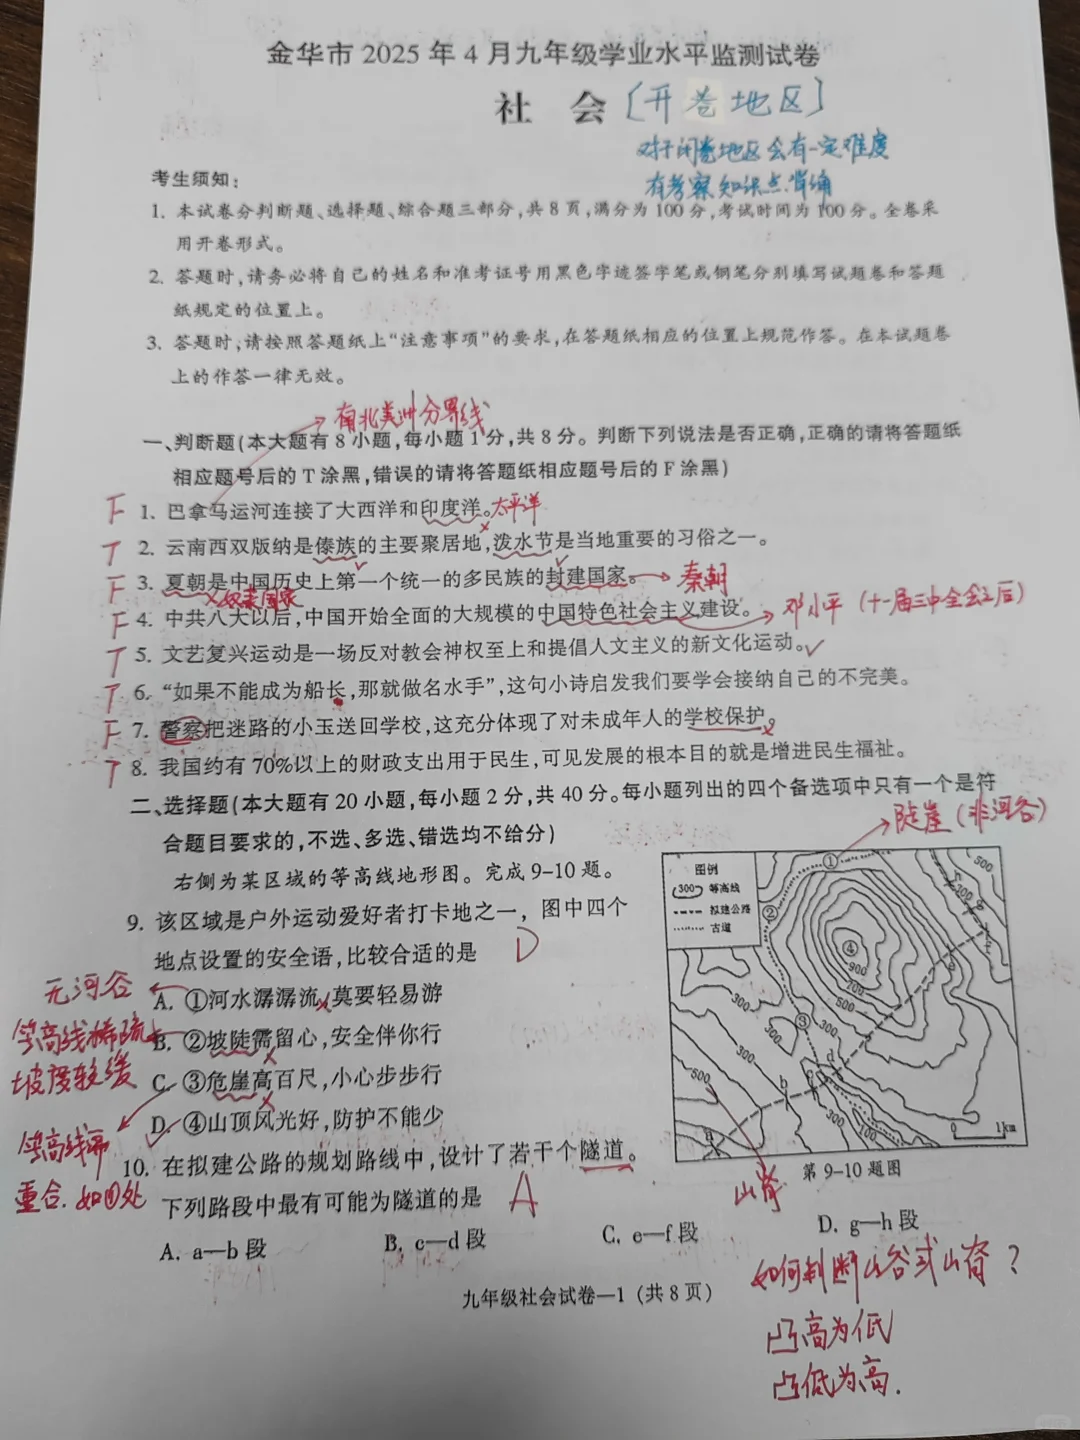 金华市 2025 年 4 月九年级学业水平监测试卷
社 会 [开卷地区]
对于闭卷地区会有一定难度
有考察知识点背诵
考生须知：
1. 本试卷分判断题、选择题、综合题三部分，共 8 页，满分为 100 分，考试时间为 100 分。全卷采
用开卷形式。
2. 答题时，请务必将自己的姓名和准考证号用黑色字迹签字笔或钢笔分别填写试题卷和答题
纸规定的位置上。
3. 答题时，请按照答题纸上“注意事项”的要求，在答题纸相应的位置上规范作答。在本试题卷
上的作答一律无效。
南北美洲分界线
一、判断题(本大题有 8 小题，每小题 1 分，共 8 分。判断下列说法是否正确，正确的请将答题纸
相应题号后的 T 涂黑，错误的请将答题纸相应题号后的 F 涂黑)
F 1. 巴拿马运河连接了大西洋和印度洋。太平洋
T 2. 云南西双版纳是傣族的主要聚居地，泼水节是当地重要的习俗之一。
F 3. 夏朝是中国历史上第一个统一的多民族的封建国家。秦朝
奴隶国家
F 4. 中共八大以后，中国开始全面的大规模的中国特色社会主义建设。邓小平（十一届三中全会之后）
T 5. 文艺复兴运动是一场反对教会神权至上和提倡人文主义的新文化运动。
T 6. “如果不能成为船长，那就做名水手”，这句小诗启发我们要学会接纳自己的不完美。
F 7. 警察把迷路的小玉送回学校，这充分体现了对未成年人的学校保护。
T 8. 我国约有 70%以上的财政支出用于民生，可见发展的根本目的就是增进民生福祉。
二、选择题(本大题有 20 小题，每小题 2 分，共 40 分。每小题列出的四个备选项中只有一个是符
合题目要求的，不选、多选、错选均不给分)
陡崖（非河谷）
右侧为某区域的等高线地形图。完成 9-10 题。
9. 该区域是户外运动爱好者打卡地之一，图中四个
地点设置的安全语，比较合适的是 D
无河谷
A. ①河水潺潺流，莫要轻易游
等高线稀疏
B. ②坡陡需留心，安全伴你行
坡度较缓
C. ③危崖高百尺，小心步步行
D. ④山顶风光好，防护不能少
等高线需
重合.如①处
10. 在拟建公路的规划路线中，设计了若干个隧道。
下列路段中最有可能为隧道的是 A
A. a—b 段
B. c—d 段
C. e—f 段
D. g—h 段
图例
300 等高线
拟建公路
古道
①
②
③
④
900
700
500
300
300
300
300
500
500
300
300
100
a
b
c
d
0 1km
第 9-10 题图
山脊
如何判断山谷或山脊？
凸高为低
凸低为高.
九年级社会试卷—1 (共 8 页)